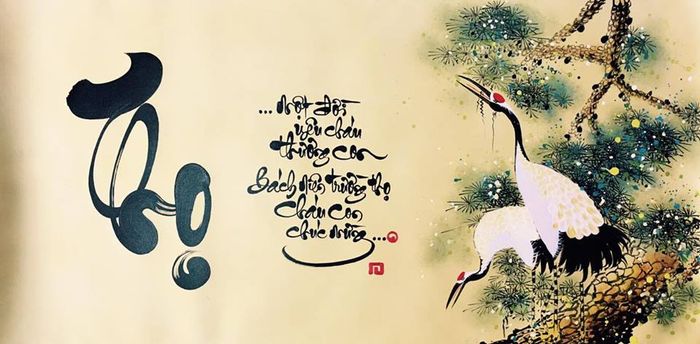 Thọ
... Một đời
yêu cháu
thương con
Bách niên trường thọ
Cháu con
chúc mừng...